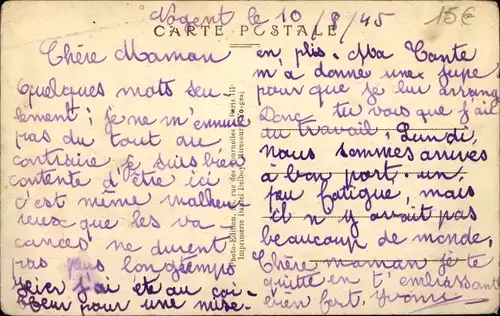 Nogent le 10/8/45
15€
CARTE POSTALE
Chère Maman
Quelques mots seu-
lement ; je ne m'ennuie
pas du tout au
contraire je suis bien
contente d'être ici
c'est même malheu-
reux que les va-
cances ne durent
pas plus longtemps
Hier j'ai été au coif-
feur pour une mise-
en plis. Ma Tante
m'a donné une jupe
pour que je lui arrange
Donc tu vois que j'ai
du travail, Lundi,
nous sommes arrivés
à bon port. un
peu fatigué, mais
il n'y avait pas
beaucoup de monde,
Chère maman je te
quitte en t'embrassant
bien fort. Yvonne
Photo-Edition, rue des Tournelles Paris III
Imprimerie Daniel Delboy, Mirecourt (Vosges)